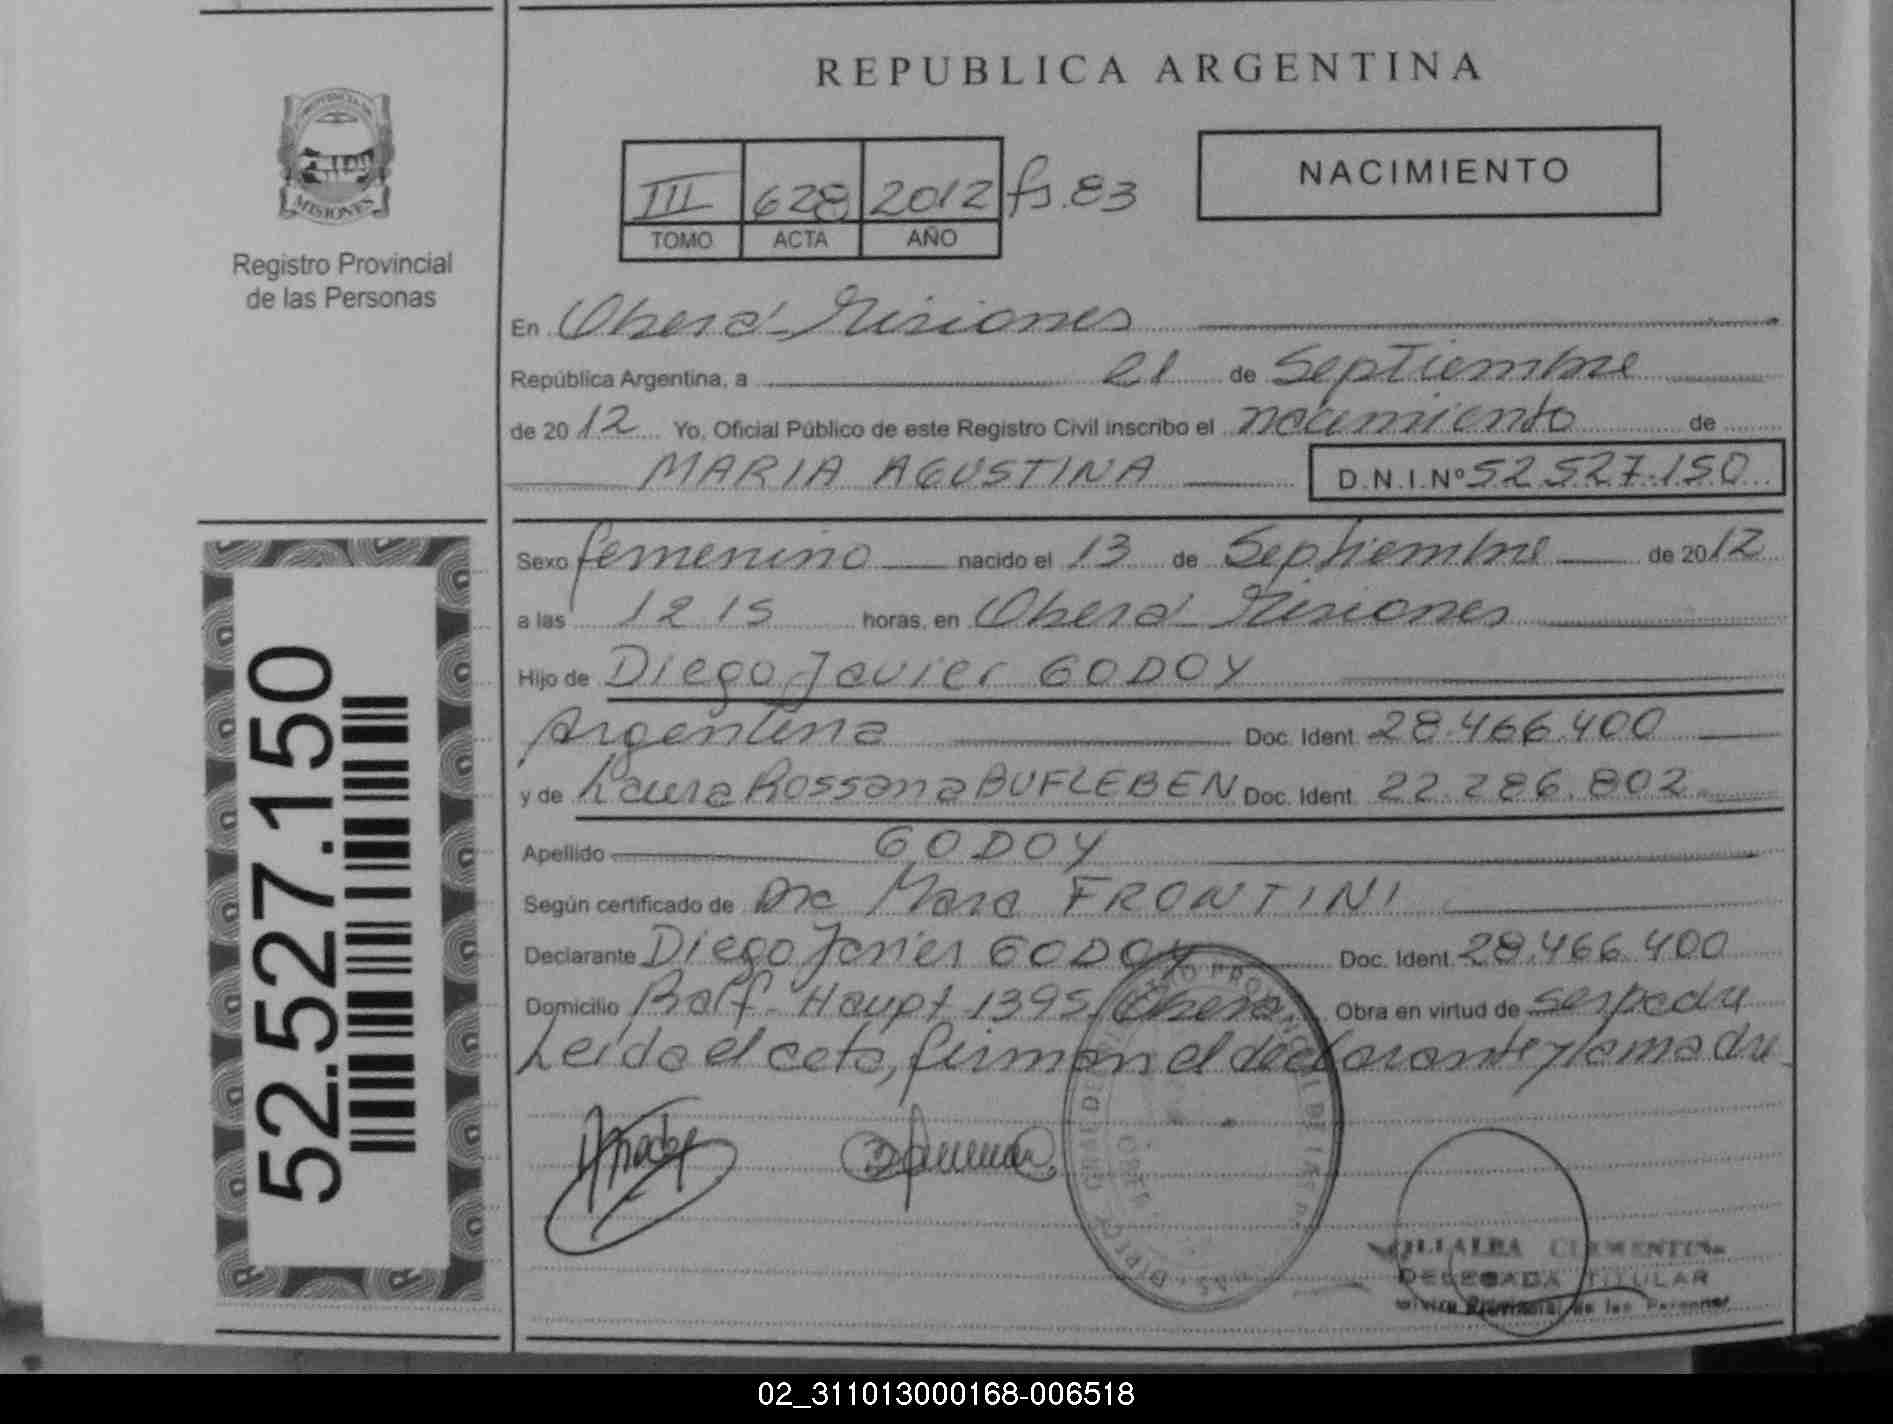 REPUBLICA ARGENTINA
PROVINCIA DE
MISIONES
Registro Provincial
de las Personas
III 628 2012 fs.83
TOMO ACTA AÑO
NACIMIENTO
En Oberá - Misiones
República Argentina, a 21 de Septiembre
de 2012 Yo, Oficial Público de este Registro Civil inscribo el nacimiento de
MARIA AGUSTINA D.N.I.Nº 52.527.150
Sexo femenino nacido el 13 de Septiembre de 2012
a las 12 15 horas, en Oberá - Misiones
Hijo de Diego Javier GODOY
Argentina Doc. Ident. 28.466.400
y de Laura Rossana BUFLEBEN Doc. Ident. 22.286.802
Apellido GODOY
Según certificado de Dra Mara FRONTINI
Declarante Diego Javier GODOY Doc. Ident. 28.466.400
Domicilio Ralf - Haupt 1395 Oberá. Obra en virtud de ser padre
Leída el acta, firman el declarante y la madre
52.527.150
VILLALBA CLEMENTINA
DELEGADA TITULAR
Provincial de las Personas
02_311013000168-006518